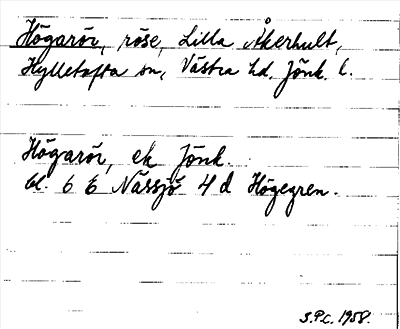 Högarör, röse, Lilla Åkerhult,
Hylletofta sn, Västra hd, Jönk. l.
Högarör, ek Jönk.
bl. 6 E Nässjö 4 d Högegren.
S.P.C. 1958.